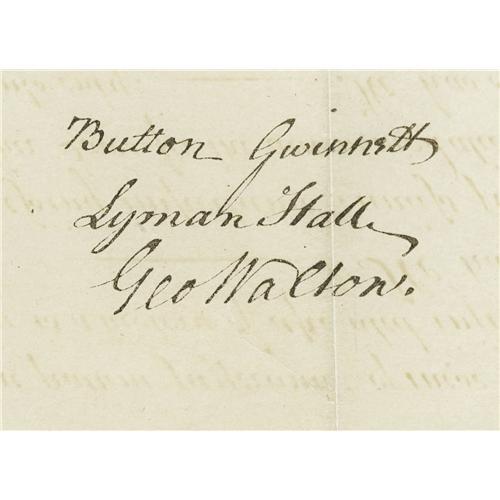 Button Gwinnett
Lyman Hall
Geo Walton.